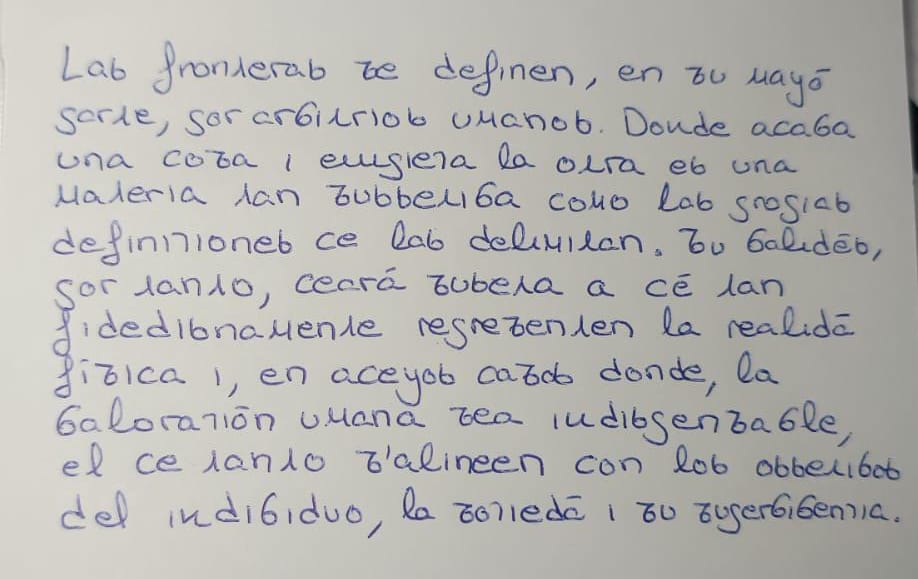 Lah fronterah se definen, en su mayō
parte, por arbitrioh umanoh. Donde acaba
una cosa i empieza la otra eh una
materia tan suhhetiba como lah propiah
definizioneh ce lah delimitan. Su balidēh,
por tanto, ceará suheta a cē tan
fidedihnamente representen la realidā
física i, en aceyoh casoh donde, la
balorazión umana sea indihpensable,
el ce tanto s'alineen con loh ohhetiboh
del indibiduo, la soziedā i su superbibenzia.